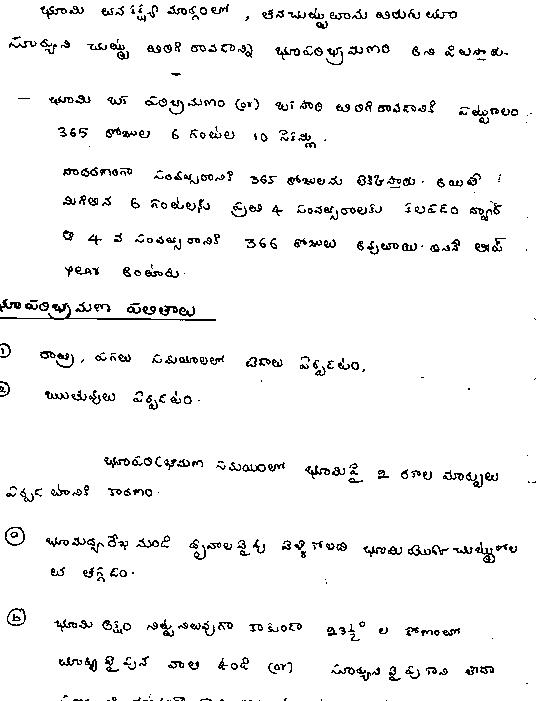 భూమి తన కక్ష్య మార్గంలో , తన చుట్టూ తాను తిరుగుతూ
సూర్యుని చుట్టు తిరిగి రావడాన్ని భూపరిభ్రమణం అని పిలుస్తారు.
– భూమి ఒక పరిభ్రమణం (or) ఒకసారి తిరిగి రావడానికి పట్టుకాలం
365 రోజుల 6 గంటల 10 సెకన్లు.
సాధరణంగా సంవత్సరానికి 365 రోజులను లెక్కిస్తారు. అయితే
మిగిలిన 6 గంటలను ప్రతి 4 సంవత్సరాలకు కలపడం ద్వారా
ఆ 4 వ సంవత్సరానికి 366 రోజులు అవుతాయి. దీనినే లీప్
year అంటారు.
భూపరిభ్రమణ ఫలితాలు
① రాత్రి, పగలు సమయాలలో తేడాలు ఏర్పడటం,
② ఋతువులు ఏర్పడటం.
భూపరిభ్రమణ సమయంలో భూమిపై 2 రకాల మార్పులు
ఏర్పడటానికి కారణం.
ⓐ భూమధ్యరేఖ నుండి ధృవాల వైపు వెళ్ళేకొలది భూమి యొక్క చుట్టుకొల
త తగ్గడం.
ⓑ భూమి అక్షం నిట్టనిలువుగా కాకుండా 23½° ల కోణంలో
సూర్యు వైపునకు వాలి ఉండి (or) సూర్యుని వైపు గాని లేదా